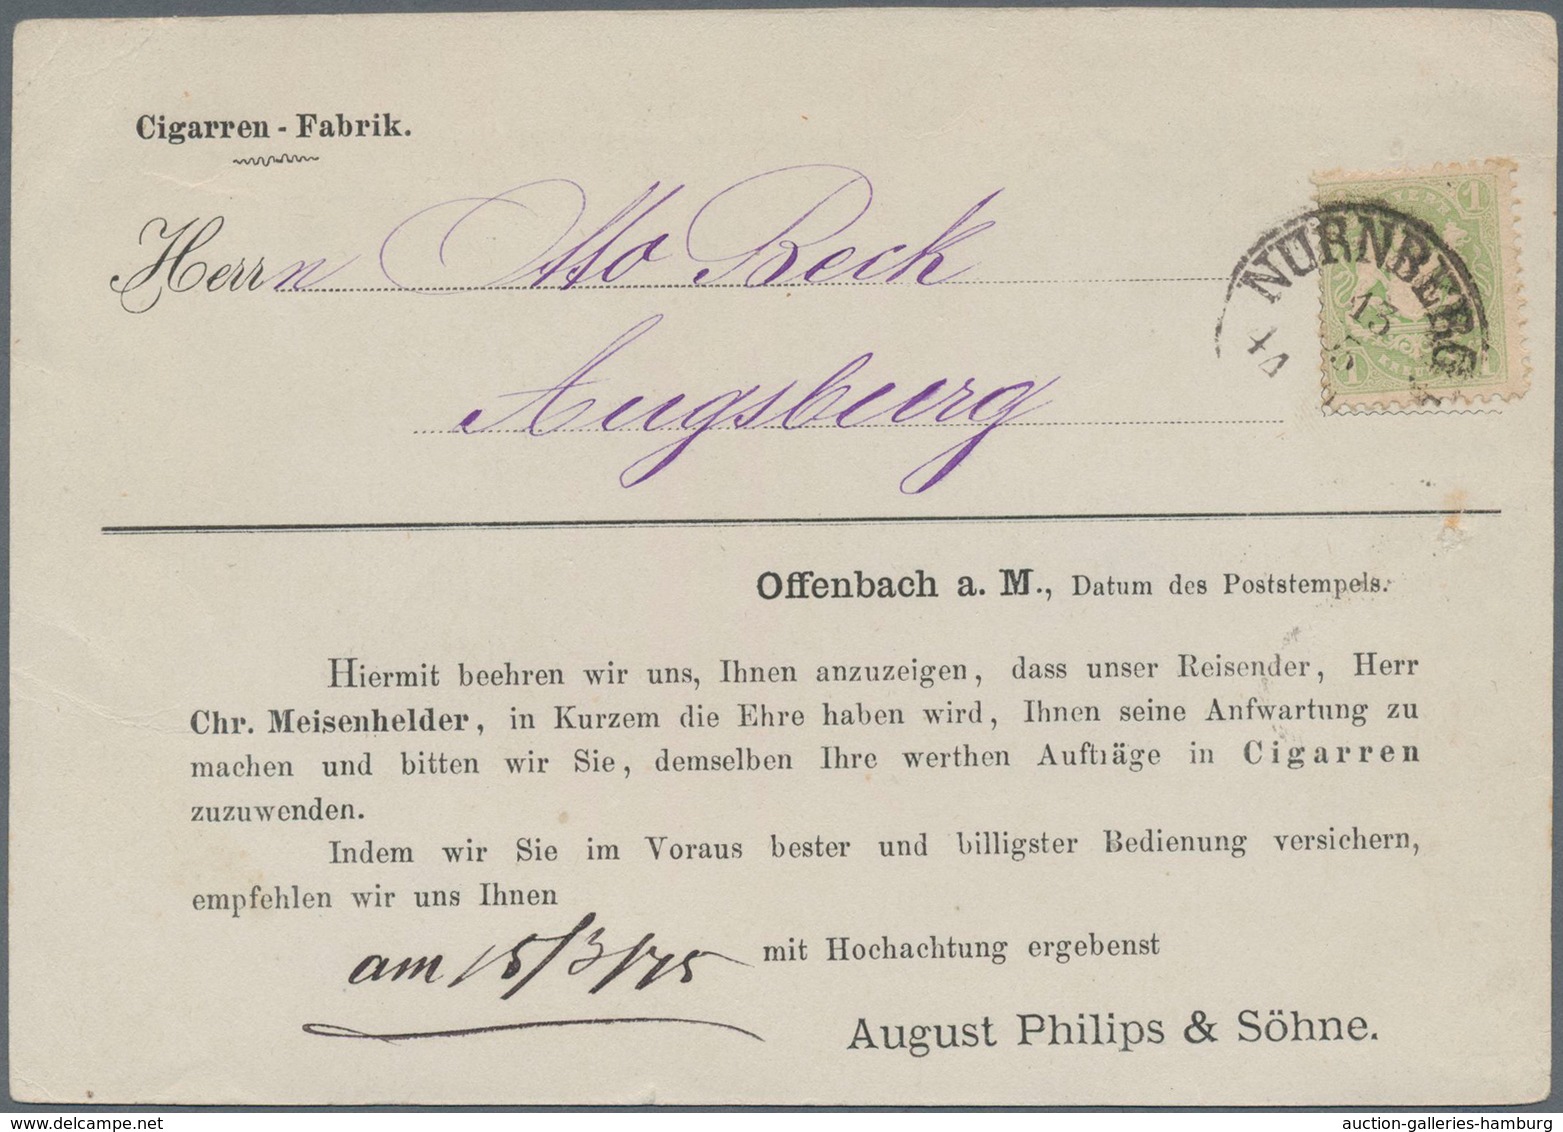 Cigarren - Fabrik.
Herrn Otto Reck
Augsburg
1
NÜRNBERG
13
1
Offenbach a. M., Datum des Poststempels.
Hiermit beehren wir uns, Ihnen anzuzeigen, dass unser Reisender, Herr
Chr. Meisenhelder, in Kurzem die Ehre haben wird, Ihnen seine Anfwartung zu
machen und bitten wir Sie, demselben Ihre werthen Aufträge in Cigarren
zuzuwenden.
Indem wir Sie im Voraus bester und billigster Bedienung versichern,
empfehlen wir uns Ihnen
am 15/3/75 mit Hochachtung ergebenst
August Philips & Söhne.
auction-galleries-hamburg